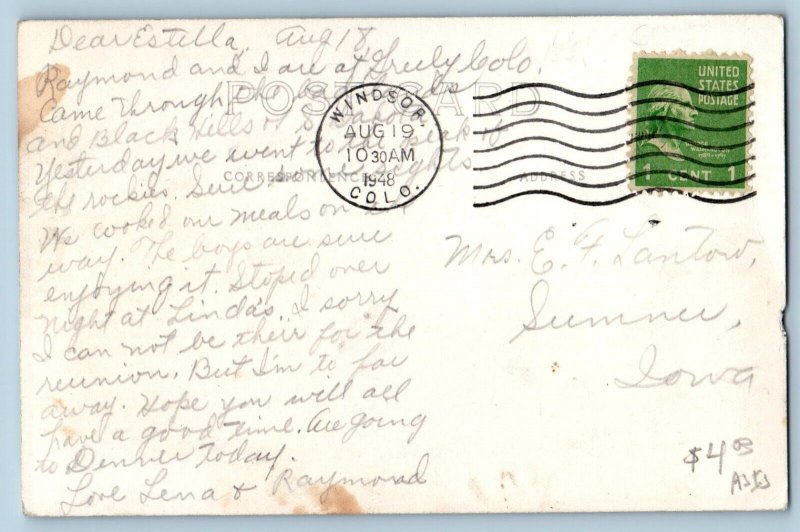 Dear Estella, Aug 18,
Raymond and I are at Greely Colo.
Came Through the bad lands
and Black Hills of S Dakota
Yesterday we went to the Peak of
the rockies. Sure sights
We cooked our meals on
way. The boys are sure
enjoying it. Stoped over
night at Linda's. I sorry
I can not be their for the
reunion. But I'm to far
away. Hope you will all
have a good time. Are going
to Denver Today.
Love Lena & Raymond
POST CARD
CORRESPONDENCE
ADDRESS
WINDSOR,
AUG 19
10 30 AM
1948
COLO.
UNITED
STATES
POSTAGE
1 CENT 1
Mrs. E. F. Lantow,
Sumner,
Iowa
$4.03